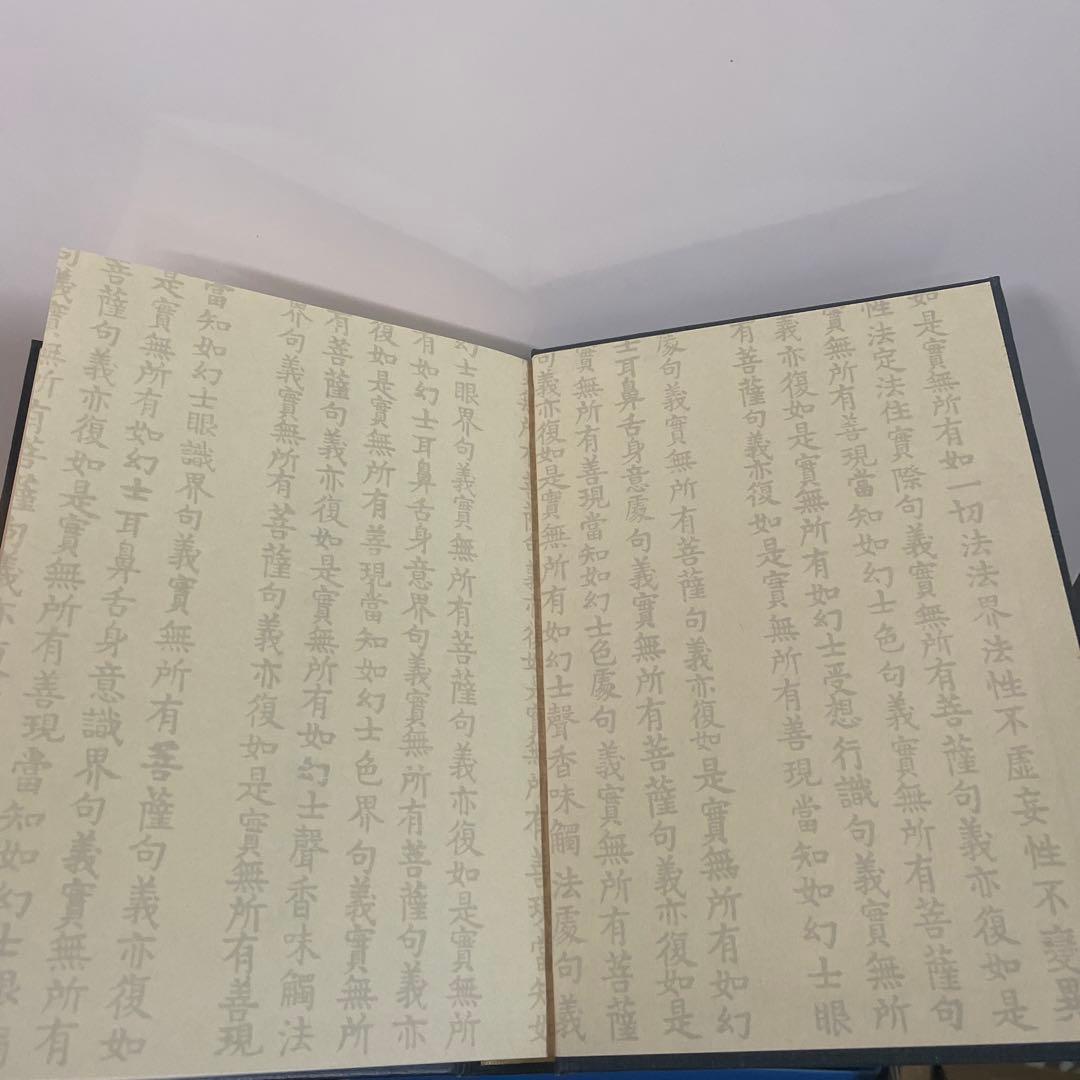 如是實無所有如一切法法界法性不虛妄性不變異
性法定法住實際句義實無所有菩薩句義亦復如是
實無所有善現當知如幻士色句義實無所有菩薩句
義亦復如是實無所有如幻士受想行識句義實無所
有菩薩句義亦復如是實無所有善現當知如幻士眼
處句義實無所有菩薩句義亦復如是實無所有如幻
士耳鼻舌身意處句義實無所有菩薩句義亦復如是
實無所有善現當知如幻士色處句義實無所有菩薩
句義亦復如是實無所有如幻士聲香味觸法處句義
幻士眼界句義實無所有菩薩句義亦復如是實無所
有如幻士耳鼻舌身意界句義實無所有菩薩句義亦
復如是實無所有善現當知如幻士色界句義實無所
有菩薩句義亦復如是實無所有如幻士聲香味觸法
界句義實無所有菩薩句義亦復如是實無所有善現
當知如幻士眼識界句義實無所有菩薩句義亦復如
是實無所有如幻士耳鼻舌身意識界句義實無所有
菩薩句義亦復如是實無所有善現當知如幻士眼觸
句義實無所有菩薩句義亦